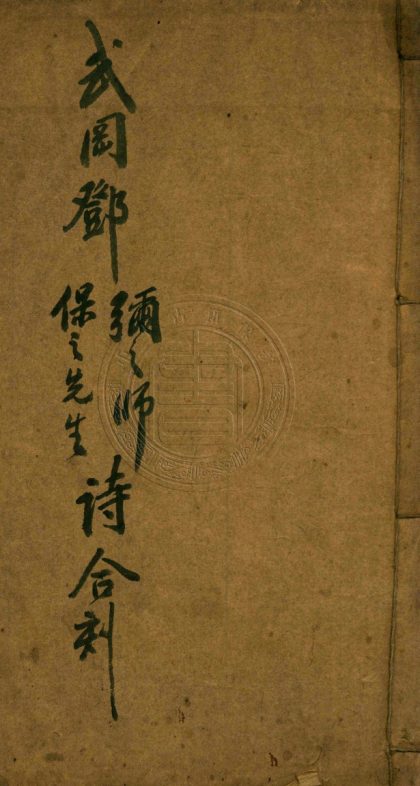 武岡鄧
彌之師
保之先生
詩合刻